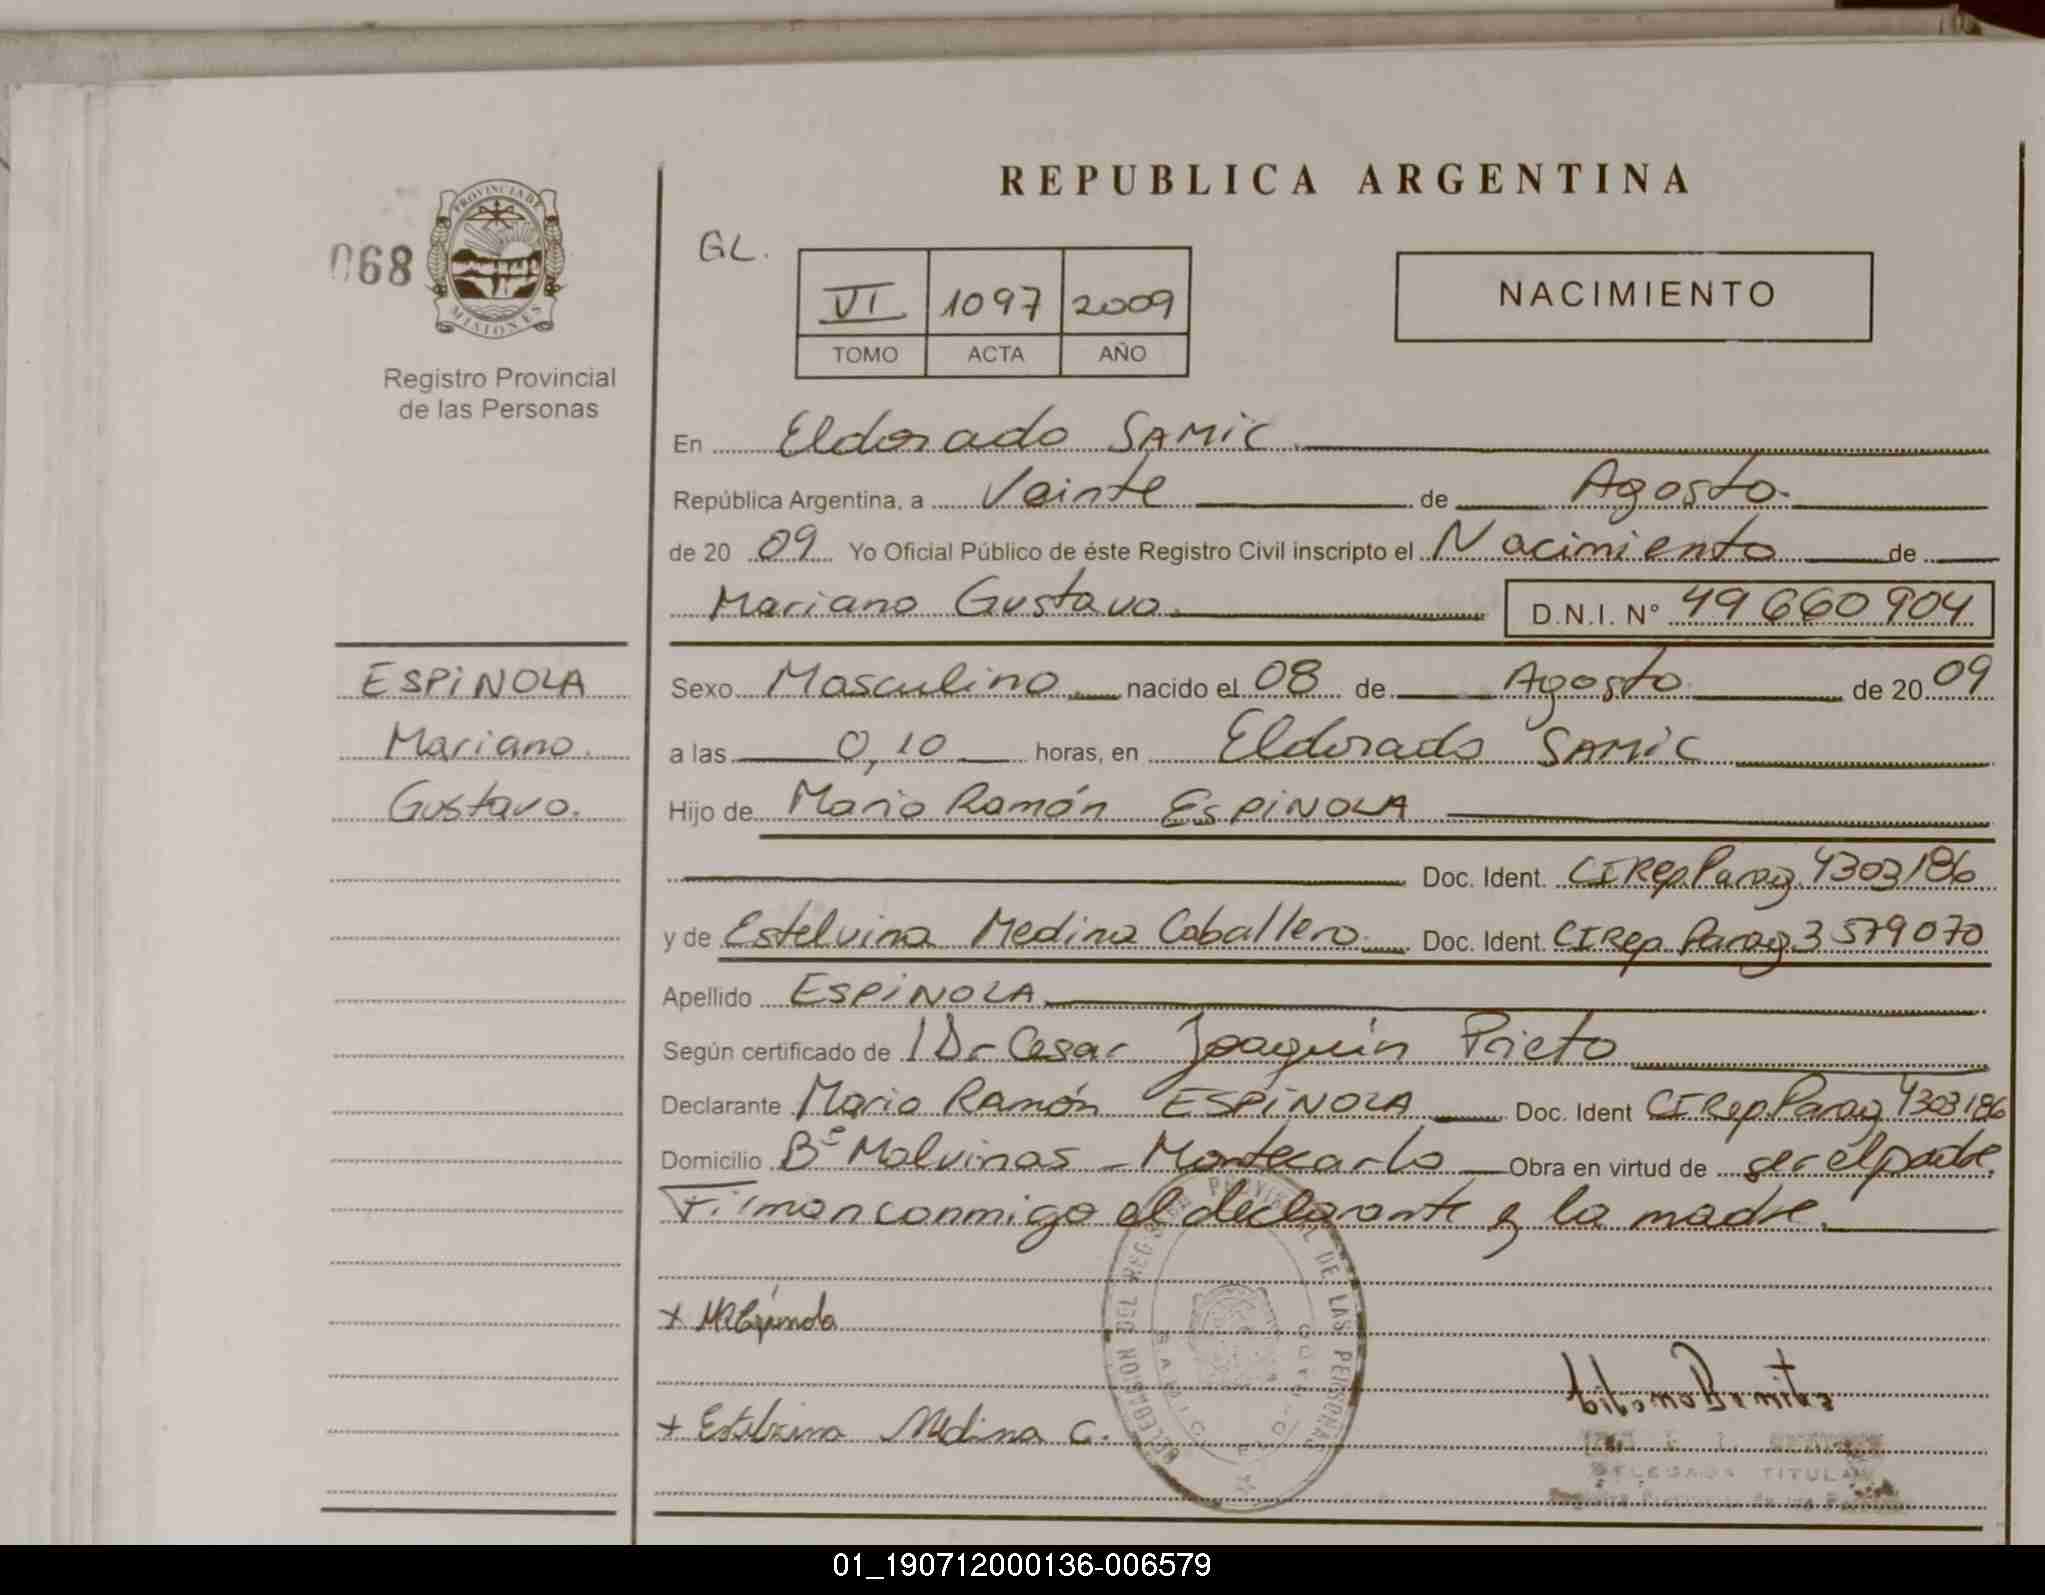 REPUBLICA ARGENTINA
068
PROVINCIA DE
MISIONES
Registro Provincial
de las Personas
GL.
VI 1097 2009
TOMO ACTA AÑO
NACIMIENTO
En Eldorado SAMIC
República Argentina, a Veinte de Agosto.
de 20 09 Yo Oficial Público de éste Registro Civil inscripto el Nacimiento de
Mariano Gustavo. D.N.I. Nº 49660904
ESPINOLA
Mariano.
Gustavo.
Sexo Masculino nacido el 08 de Agosto de 20 09
a las 0,10 horas, en Eldorado SAMIC
Hijo de Mario Ramón ESPINOLA
Doc. Ident. CI Rep Parag. 4303186
y de Estelvina Medina Caballero Doc. Ident CI Rep Parag 3579070
Apellido ESPINOLA
Según certificado de Dr Cesar Joaquin Prieto
Declarante Mario Ramón ESPINOLA Doc. Ident CI Rep Parag 4303186
Domicilio Bº Malvinas - Montecarlo Obra en virtud de ser el padre.
Firman conmigo el declarante y la madre.
+ MREspinola
+ Estelvina Medina C.
DELEGACION DEL REGISTRO PROVINCIAL DE LAS PERSONAS
DELEGADA TITULAR
01_190712000136-006579